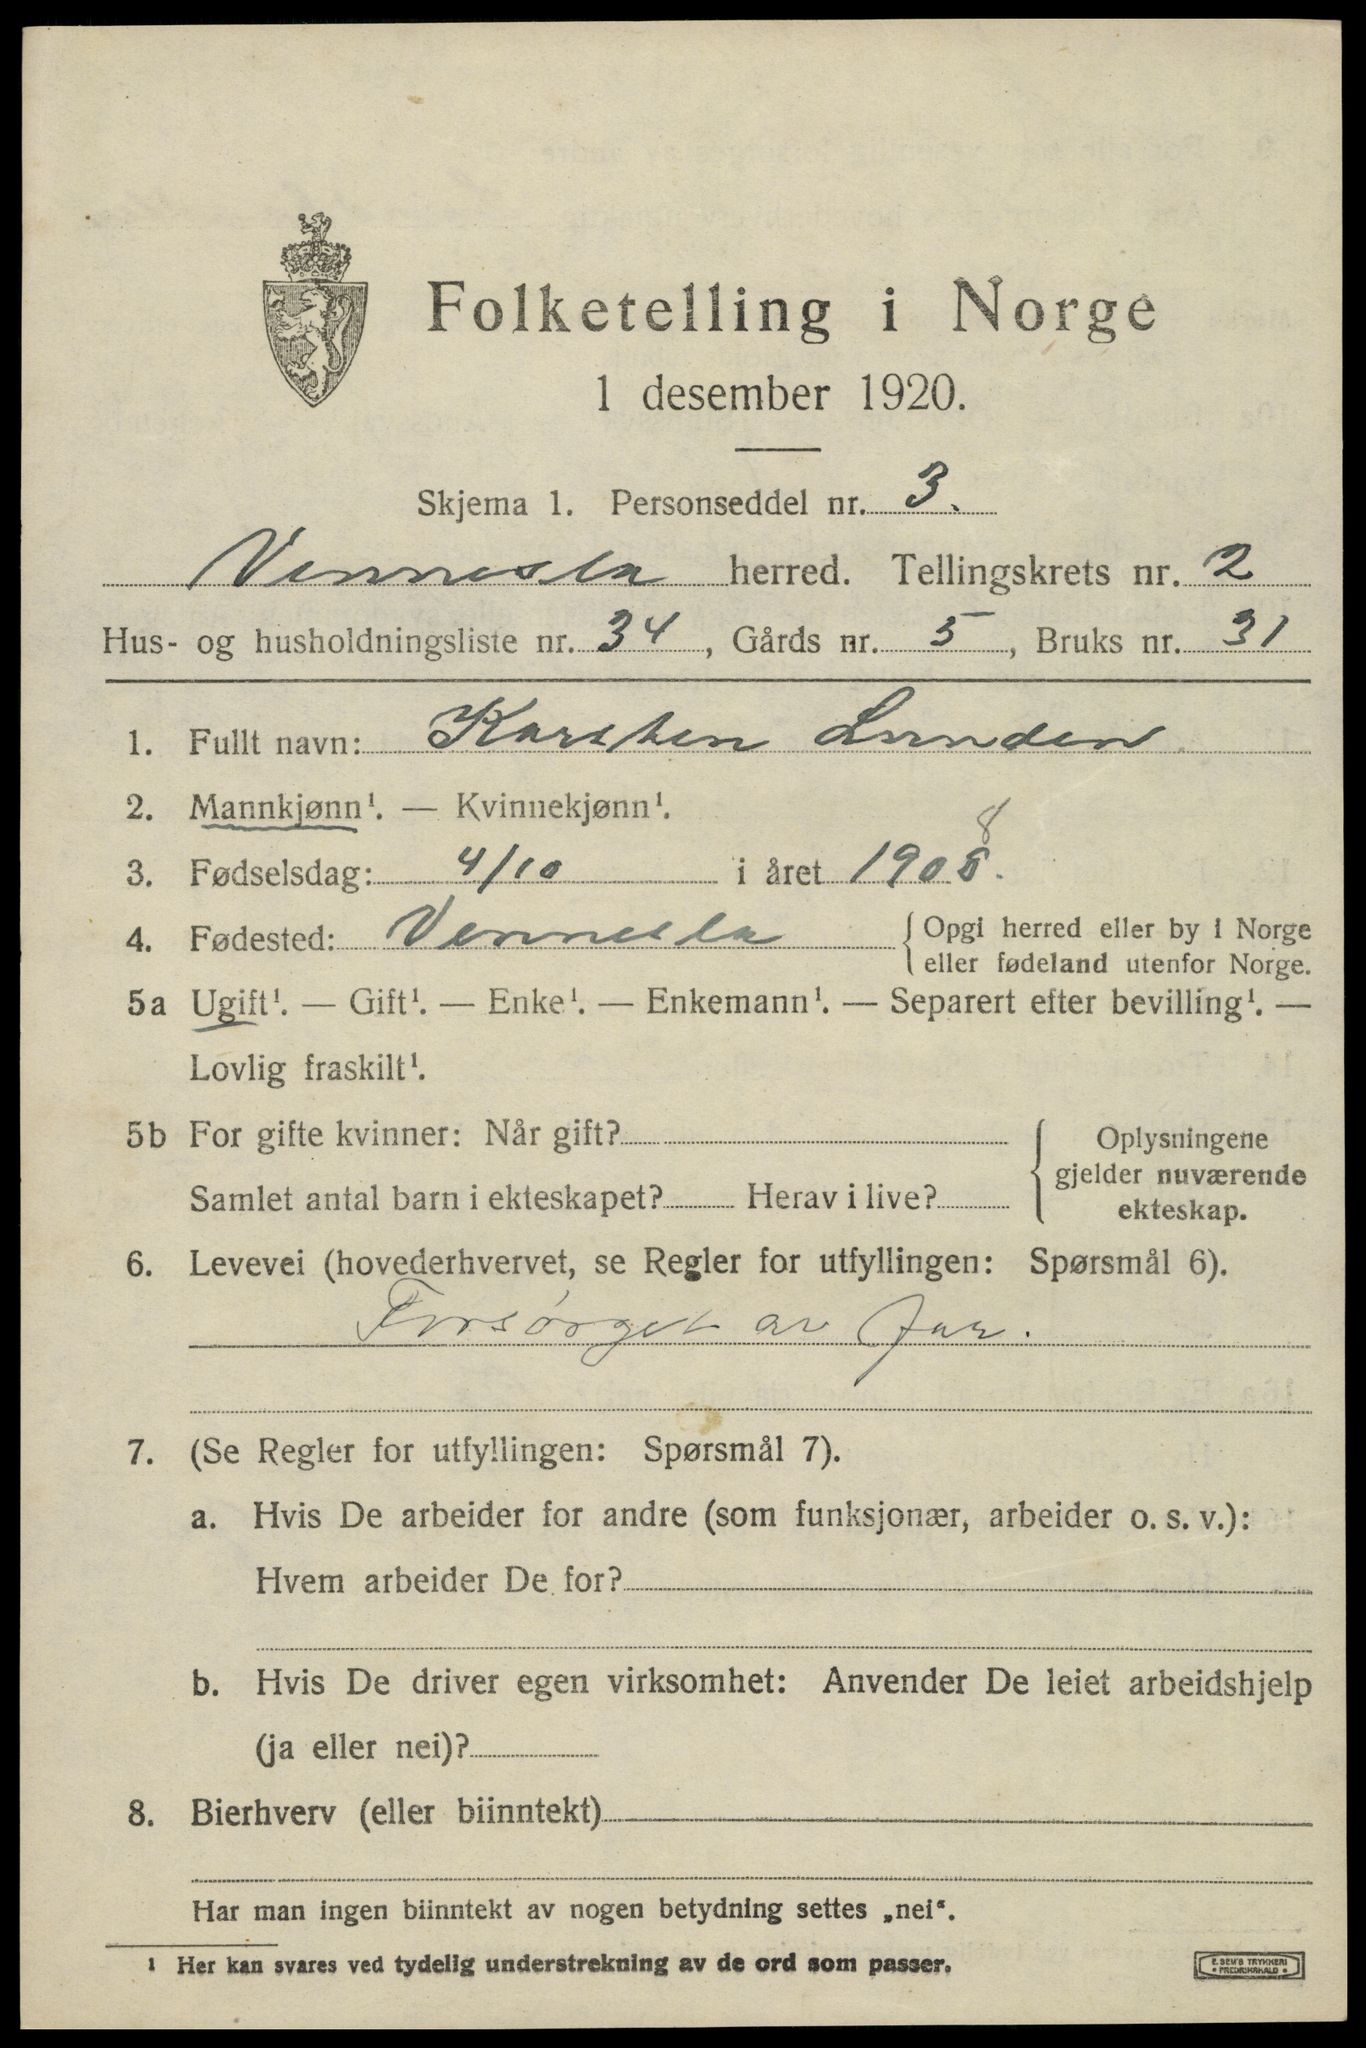 Folketelling i Norge
1 desember 1920.
Skjema 1. Personseddel nr. 3.
Vennesla herred. Tellingskrets nr. 2
Hus- og husholdningsliste nr. 34, Gårds nr. 5, Bruks nr. 31
1. Fullt navn: Karsten Lunden
2. Mannkjønn¹. — Kvinnekjønn¹.
8
3. Fødselsdag: 4/10 i året 1908.
4. Fødested: Vennesla { Opgi herred eller by i Norge
eller fødeland utenfor Norge.
5a Ugift¹. — Gift¹. — Enke¹. — Enkemann¹. — Separert efter bevilling¹. —
Lovlig fraskilt¹.
5b For gifte kvinner: Når gift?
Samlet antal barn i ekteskapet? Herav i live?
Oplysningene
gjelder nuværende
ekteskap.
6. Levevei (hovederhvervet, se Regler for utfyllingen: Spørsmål 6).
Forsørget av far.
7. (Se Regler for utfyllingen: Spørsmål 7).
a. Hvis De arbeider for andre (som funksjonær, arbeider o. s. v.):
Hvem arbeider De for?
b. Hvis De driver egen virksomhet: Anvender De leiet arbeidshjelp
(ja eller nei)?
8. Bierhverv (eller biinntekt)
Har man ingen biinntekt av nogen betydning settes „nei“.
¹ Her kan svares ved tydelig understrekning av de ord som passer.
E. SEM'S TRYKKERI
• FREDRIKSHALD •